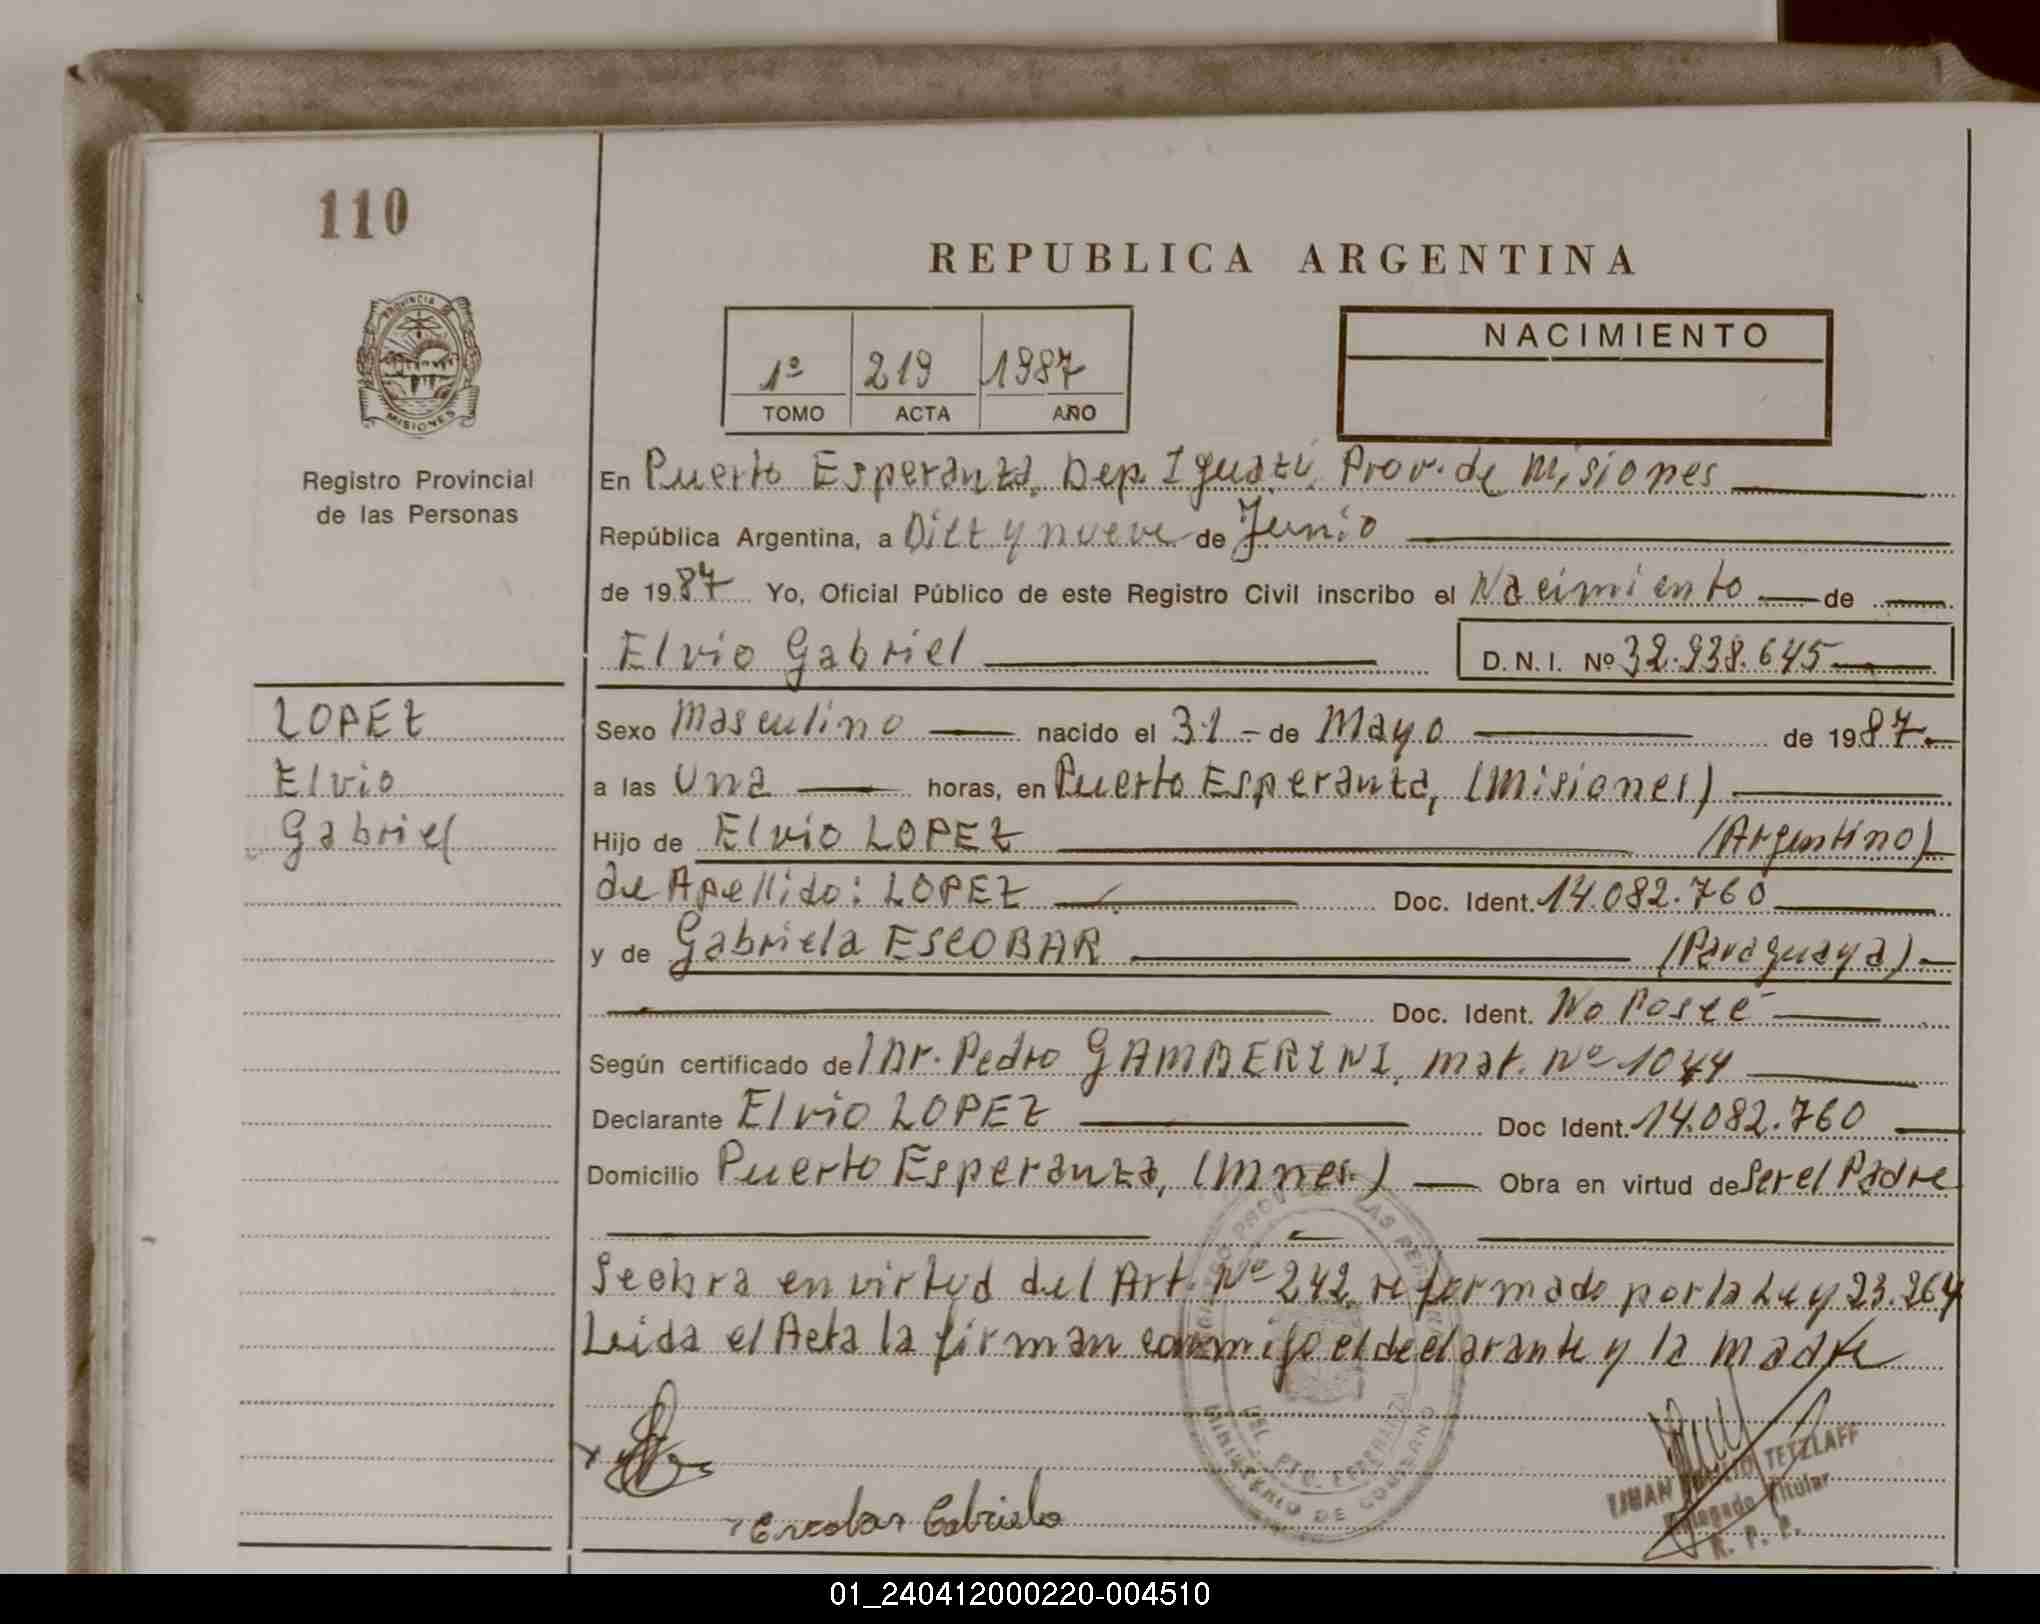 110
REPUBLICA ARGENTINA
PROVINCIA DE
MISIONES
Registro Provincial
de las Personas
1º 219 1987
TOMO ACTA AÑO
NACIMIENTO
En Puerto Esperanza, Dep. Iguazú, Prov. de Misiones
República Argentina, a Diez y nueve de Junio
de 1987 Yo, Oficial Público de este Registro Civil inscribo el Nacimiento de
Elvio Gabriel D.N.I. Nº 32.938.645
LOPEZ
Elvio
Gabriel
Sexo Masculino nacido el 31 - de Mayo de 1987.
a las Una horas, en Puerto Esperanza, (Misiones)
Hijo de Elvio LOPEZ (Argentino)
de Apellido: LOPEZ Doc. Ident. 14.082.760
y de Gabriela ESCOBAR (Paraguaya)
Doc. Ident. No Posee
Según certificado de l Dr. Pedro GAMBERINI, mat. Nº 1044
Declarante Elvio LOPEZ Doc Ident. 14.082.760
Domicilio Puerto Esperanza, (Mnes.) Obra en virtud de Ser el Padre
Se obra en virtud del Art. Nº 242, reformado por la Ley 23.264
Leida el Acta la firman conmigo el declarante y la madre
Escobar Gabriela
MINISTERIO DE GOBIERNO
JUAN TETZLAFF
Delegado Titular
R. P. P.
01_240412000220-004510